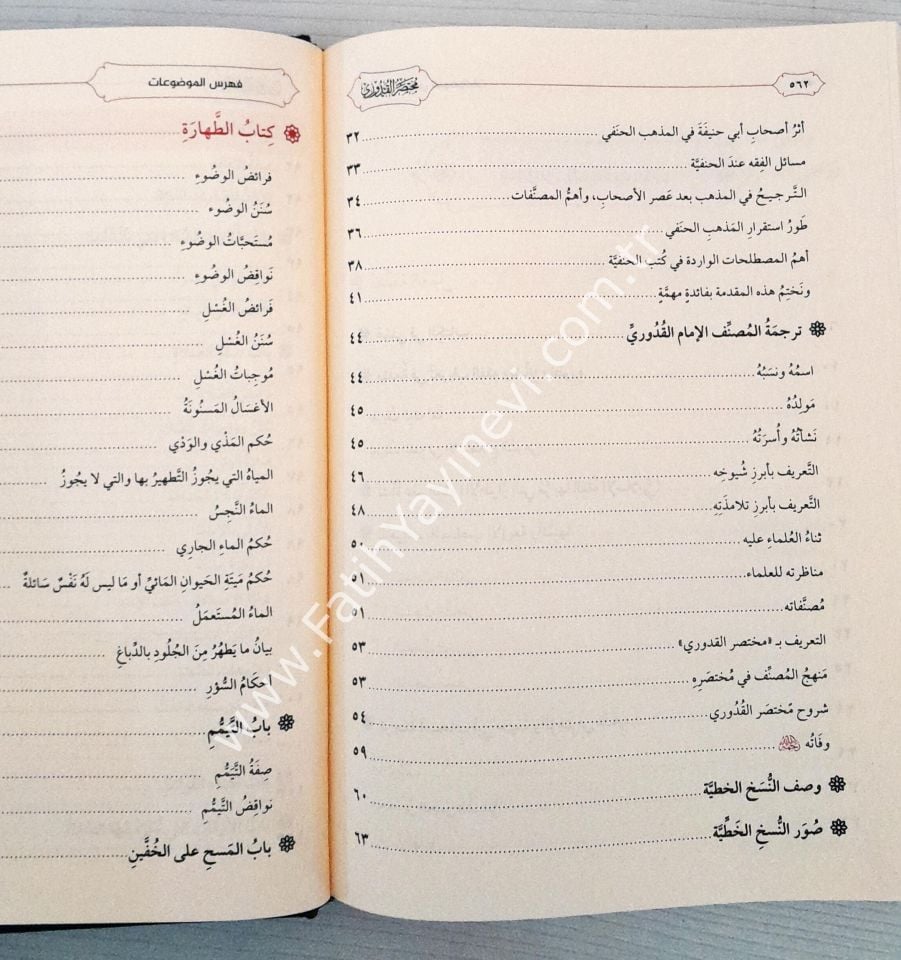 ٥٦٢
مختصر القدوري
أثرُ أصحابِ أبي حنيفَةَ في المذهب الحنَفي ٣٢
مسائل الفِقه عندَ الحنفيَّة ٣٣
التَّرجيحُ في المذهب بعد عَصر الأصحابِ، وأهمُّ المصنَّفات ٣٤
طَورُ استقرارِ المَذهبِ الحنَفي ٣٦
أهمُ المصطلحات الواردة في كُتب الحنفيَّة ٣٨
ونَختِمُ هذه المقدمة بفائدةٍ مهمَّةٍ ٤١
ترجمَةُ المُصنِّف الإمام القُدُوريِّ ٤٤
اسمُهُ ونسَبُهُ ٤٤
مَولِدُهُ ٤٥
نَشأتُهُ وأُسرَتُهُ ٤٥
التَّعريف بأبرزِ شُيوخِه ٤٦
التَّعريف بأبرزِ تلامذَتِهِ ٤٨
ثناءُ العُلماءِ عليه ٥٠
مناظرته للعلماء ٥١
مُصنَّفاته ٥١
التعريف بـ «مختصر القدوري» ٥٣
مَنهجُ المُصنِّف في مُختصَرِهِ ٥٣
شروح مُختصَر القُدُوري ٥٤
وفَاتُه ٥٩
وصف النُّسَخ الخطيَّة ٦٠
صُوَر النُّسخِ الخَطِّيَّة ٦٣
فهرس الموضوعات
كِتابُ الطَّهارَةِ
فرائضُ الوضُوءِ
سُنَنُ الوضُوء
مُستَحبَّاتُ الوضُوءِ
نَواقِضُ الوضُوءِ
فَرائضُ الغُسْلِ
سُنَنُ الغُسْلِ
مُوجِباتُ الغُسْلِ
الأغسَالُ المَسنُونَةُ
حُكم المَذْي والوَدْي
المياهُ التي يَجُوزُ التَّطهيرُ بها والتي لا يجُوزُ
الماءُ النَّجِسُ
حُكمُ الماءِ الجاري
حُكمُ مَيتَةِ الحَيوانِ المَائيِّ أو مَا ليس لَهُ نَفْسٌ سَائلةٌ
الماءُ المُستَعمَلُ
بيانُ ما يَطهُرُ مِنَ الجُلُودِ بالدِّباغِ
أحكَامُ السُّؤرِ
بابُ التَّيمُّمِ
صِفَةُ التَّيَمُّمِ
نواقِضُ التَّيمُّمِ
بابُ المَسحِ على الخُفَّينِ
www.FatihYayinevi.com.tr